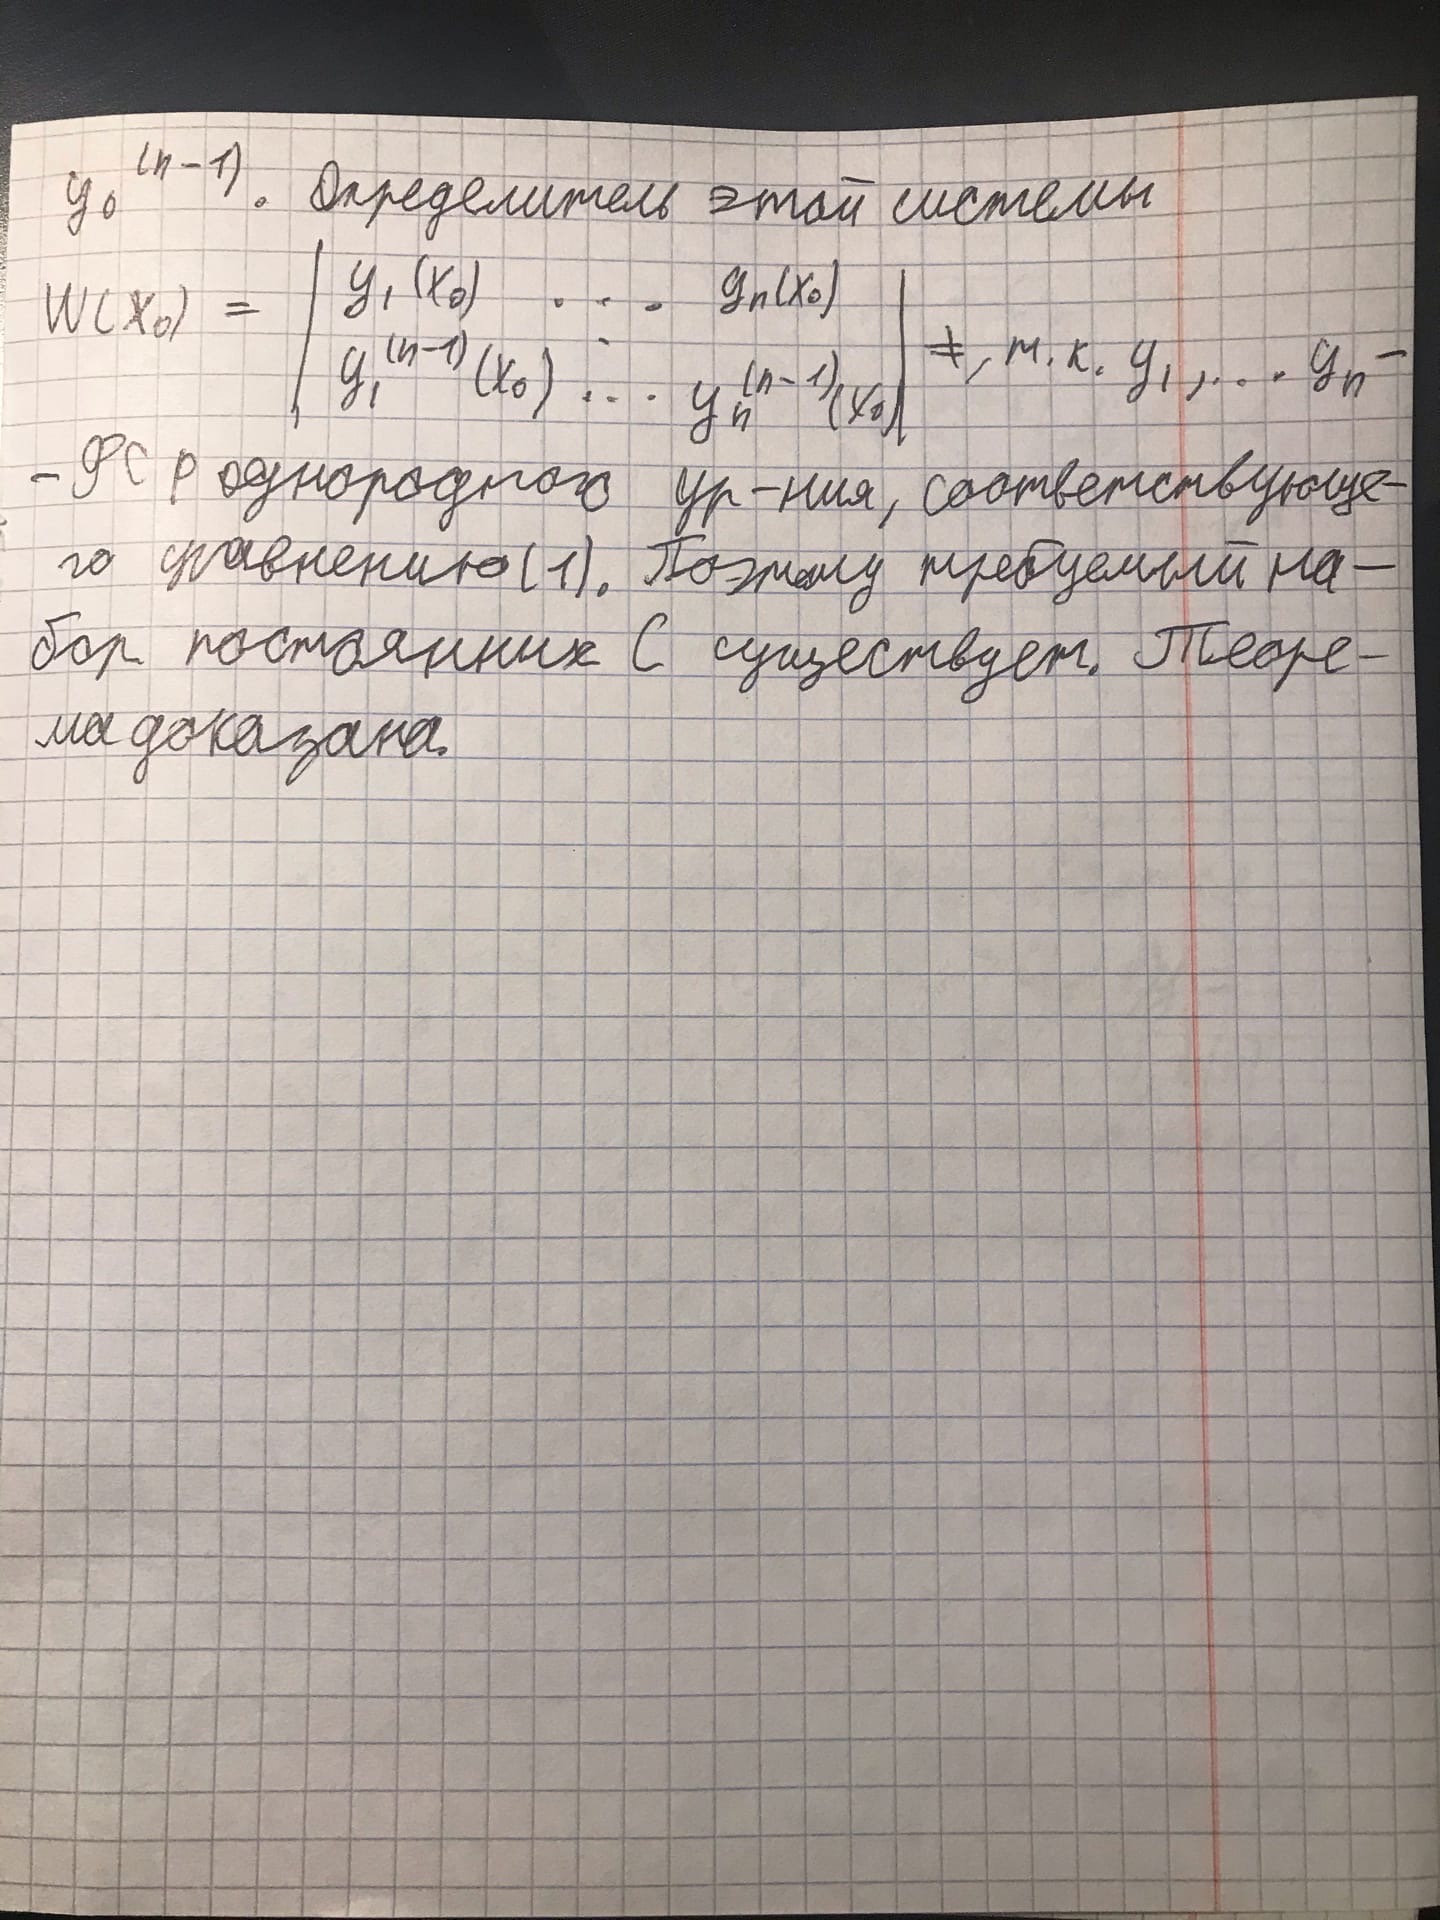 y₀⁽ⁿ⁻¹⁾. Определитель этой системы
W(x₀) = | y₁(x₀) ... yₙ(x₀) |
| y₁⁽ⁿ⁻¹⁾(x₀) ... yₙ⁽ⁿ⁻¹⁾(x₀) | ≠, т.к. y₁,... yₙ –
– ФСР однородного ур-ния, соответствующе-
го уравнению (1). Поэтому требуемый на-
бор постоянных C существует. Теоре-
ма доказана.